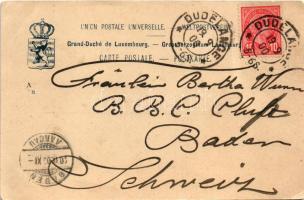 UNION POSTALE UNIVERSELLE. WELTPOSTVEREIN
Grand-Duché de Luxembourg. — Grossherzogtum Luxemburg
CARTE POSTALE. — POSTKARTE
DUDELANGE
DUDELANGE
10
A
Fräulein Bertha Wunn
B. B. C. Cluft
Baden
Schweiz
BADEN
AARGAU